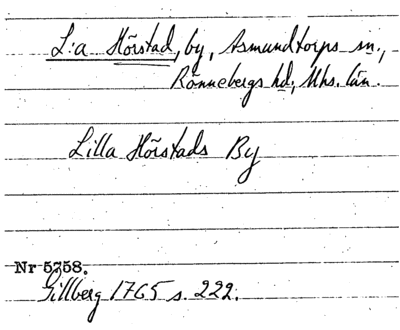 L:a Hörstad, by, Asmundtorps sn.,
Rönnebergs hd, Mhs. län.
Lilla Hörstads By
Nr 5358.
Gillberg 1765 s. 222.